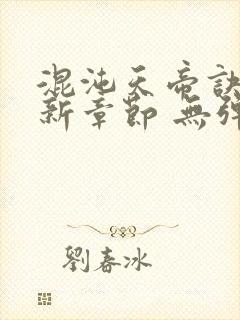 混沌天帝訣
新章節 無彈
劉春冰